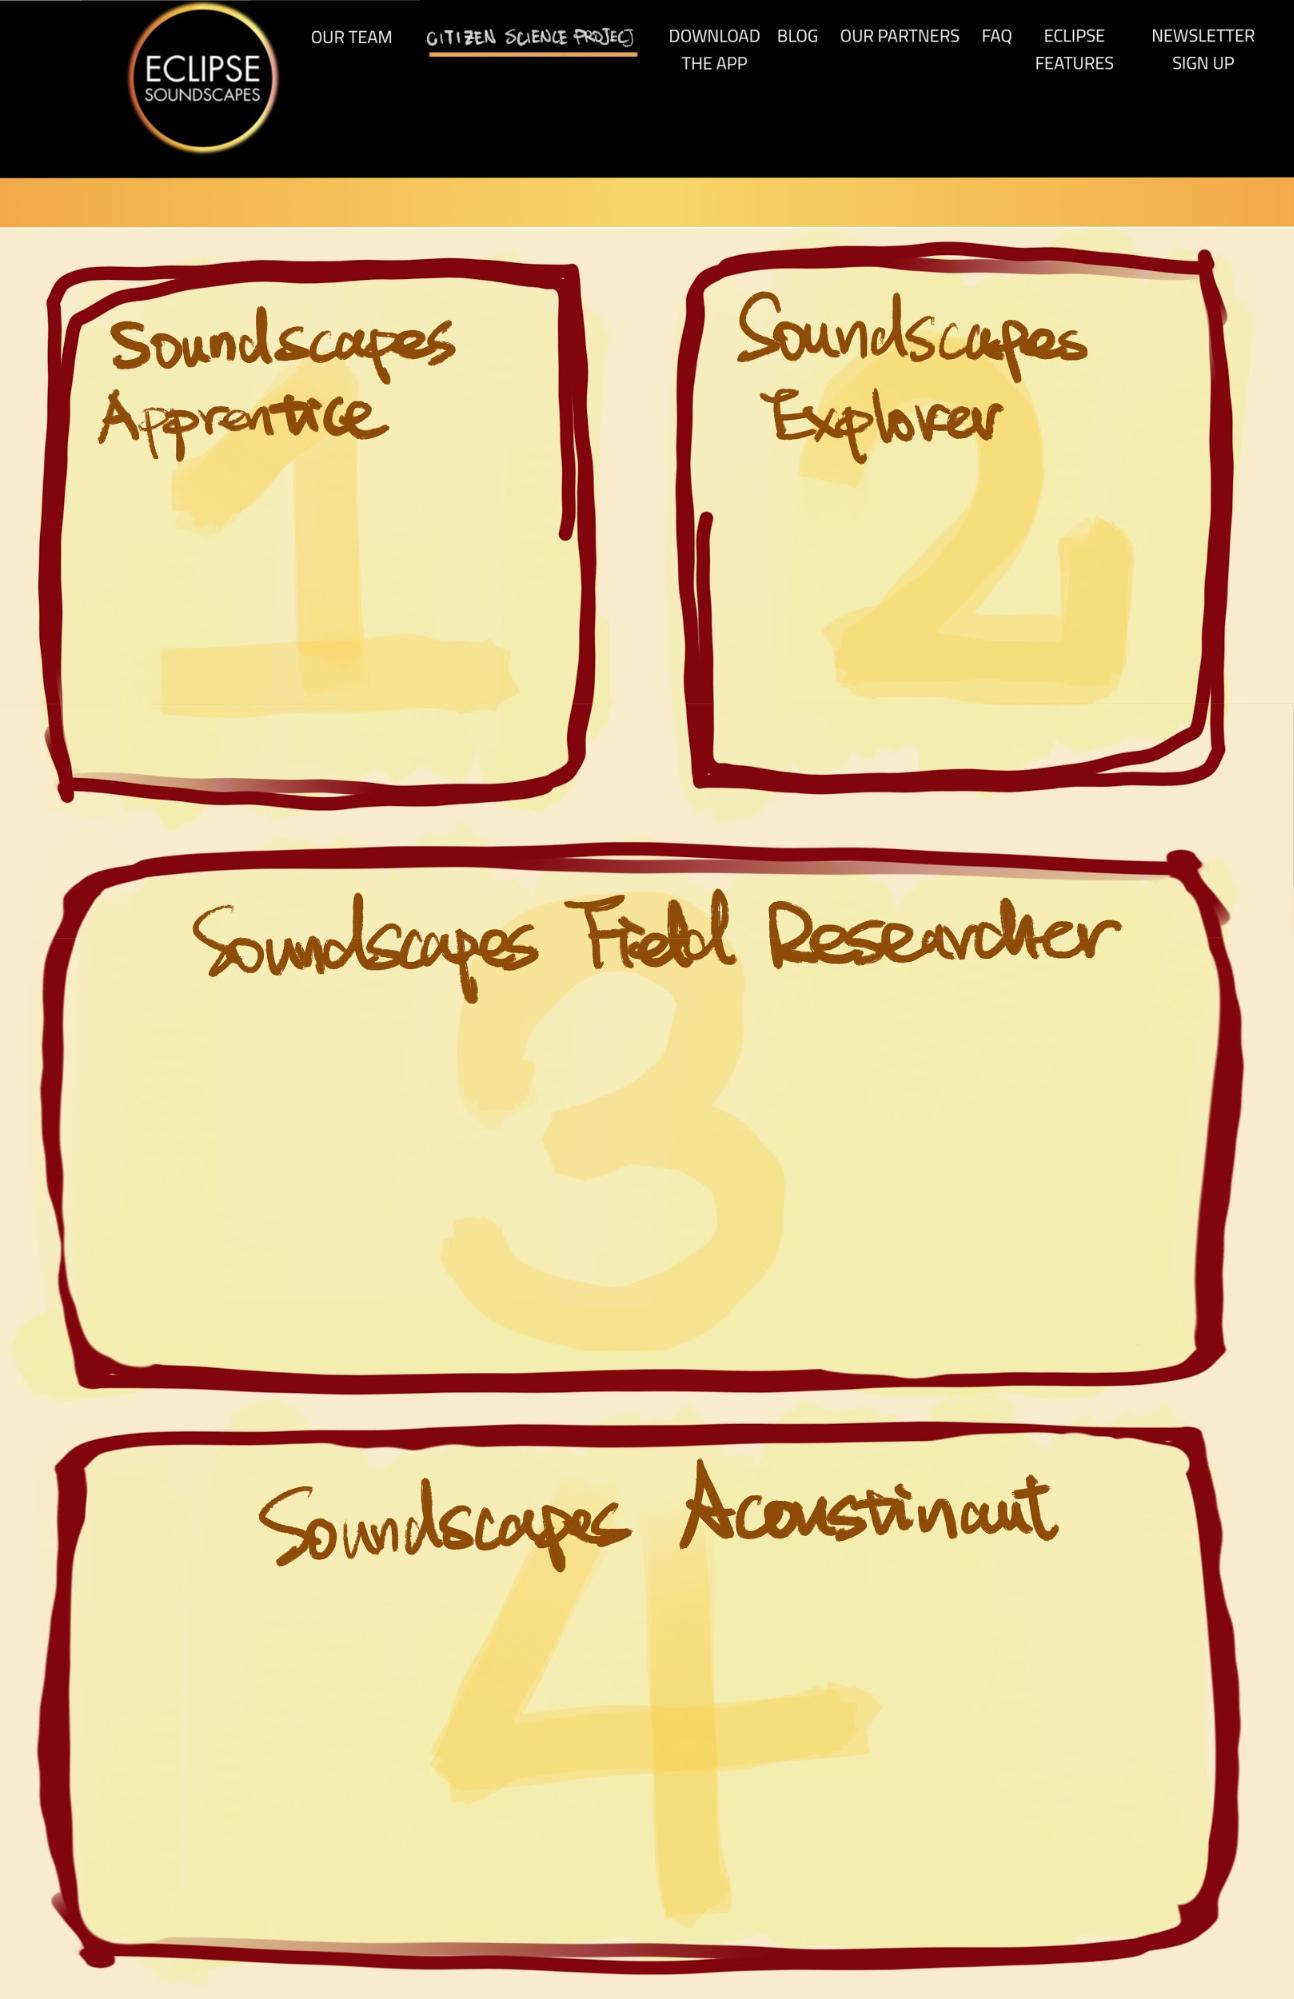 ECLIPSE
SOUNDSCAPES
OUR TEAM
CITIZEN SCIENCE PROJECJ
DOWNLOAD
THE APP
BLOG
OUR PARTNERS
FAQ
ECLIPSE
FEATURES
NEWSLETTER
SIGN UP
Soundscapes
Apprentice
1
Soundscapes
Explorer
2
Soundscapes Field Researcher
3
Soundscapes Acoustinaut
4